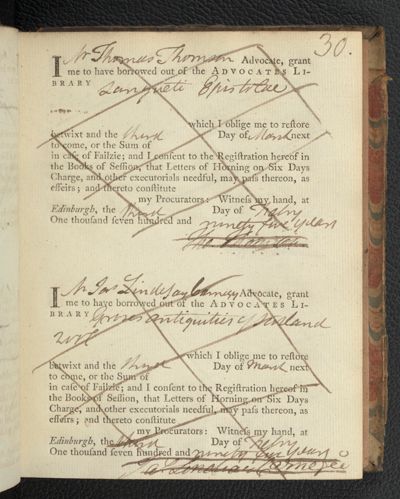 30.
I Mr Thomas Thomson Advocate, grant
me to have borrowed out of the ADVOCATES LI-
BRARY Langueti Epistolae
which I oblige me to restore
betwixt and the third Day of March next
to come, or the Sum of
in case of Failzie; and I consent to the Registration hereof in
the Books of Session, that Letters of Horning on Six Days
Charge, and other executorials needful, may pass thereon, as
effeirs; and thereto constitute
my Procurators: Witness my hand, at
Edinburgh, the third Day of Febry
One thousand seven hundred and ninety five years
I Mr Jas Lindesay Carnegy Advocate, grant
me to have borrowed out of the ADVOCATES LI-
BRARY Groses antiquities of Scotland
which I oblige me to restore
betwixt and the third Day of March next
to come, or the Sum of
in case of Failzie; and I consent to the Registration hereof in
the Books of Session, that Letters of Horning on Six Days
Charge, and other executorials needful, may pass thereon, as
effeirs; and thereto constitute
my Procurators: Witness my hand, at
Edinburgh, the third Day of Febry
One thousand seven hundred and ninety five years
Carnegie